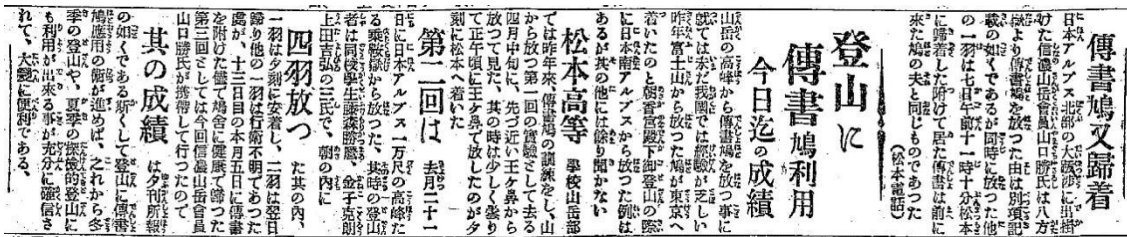 傳書鳩又歸着
日本アルプス北部の大殿沙に出掛
けた信濃山岳會員山口勝氏は八方
嶽より傳書鳩を放つた由は別項記
載の如くであるが同時に放つた他
の一羽は七日午前十一時十分松本
に歸着した附けて居た傳書は前に
來た鳩の夫と同じものであつた
(松本電話)
登山に
傳書鳩利用
今日迄の成績
山岳の高峰から傳書鳩を放つ事に
就ては未だ我國では經驗が乏しい
昨年富士山から放つた鳩が東京へ
着いたのと朝香宮殿下御登山の際
に日本南アルプスから放つた例は
あるが其の他には餘り聞かない
松本高等 學校山岳部
では昨年來、傳書鳩の訓練をし、山
から放つ第一回の實驗として去る
四月中旬に、先づ近い王ケ鼻から
放つて見た、其の時は少しく曇り
て正午頃に王ケ鼻で放したのが夕
刻に松本へ着いた
第二回は 去月二十一
日に日本アルプス一万尺の高峰た
る乘鞍嶽から放つた、其時の登山
者は同校學生藤森勝應、金子克朗
上田吉弘の三氏で、朝の內に
四羽放つ た其の內、
一羽は夕刻に安着し、二羽は翌日
歸り他の一羽は行衛不明であつた
處が、十三日目の本月五日に傳書
を附けた儘で鳩舍に健康で歸つた
第三回としては今回信濃山岳會員
山口勝氏が携帶して行つたので
其の成績 は夕刊所報
の如くである斯くして登山に傳書
鳩應用の術が進めば、之れから冬
季の登山や、夏季の探檢的登山に
も利用が出來る事が充分に確信さ
れて、大變に便利である。